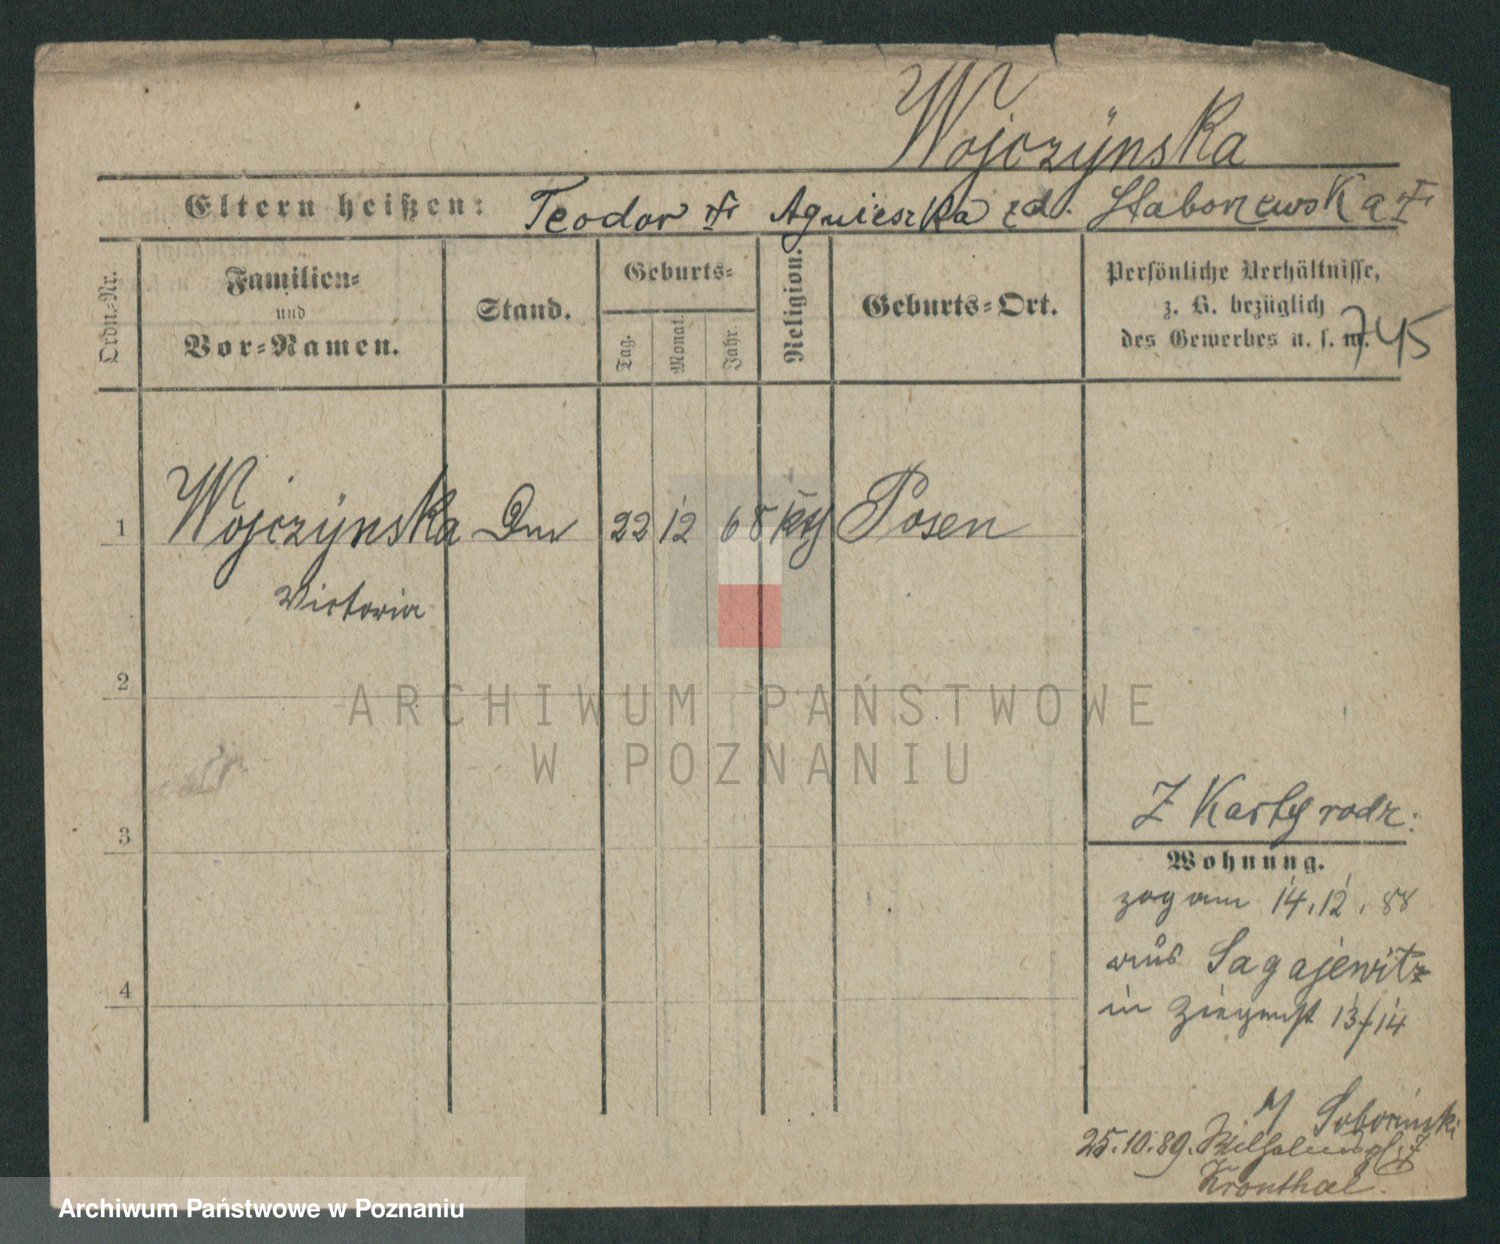 Wojczÿnska
Eltern heißen: Teodor Agnieszka zd.
Ordn.-Nr.
Familien-
und
Vor-Namen.
Stand.
Geburts-
Tag.
Monat.
Jahr.
Religion.
Geburts-Ort.
Persönliche Verhältnisse,
z. B. bezüglich
des Gewerbes u. s. w.
745
1 Wojczÿnska 22 12 68 Posen
Victoria
2
ARCHIWUM PAŃSTWOWE
W POZNANIU
3
Z Karty rodz:
Wohnung.
zog am 14.12.88
aus Sagajewitz
in Ziegenst 13/14
4
25.10.89.
Kronthal.
Archiwum Państwowe w Poznaniu